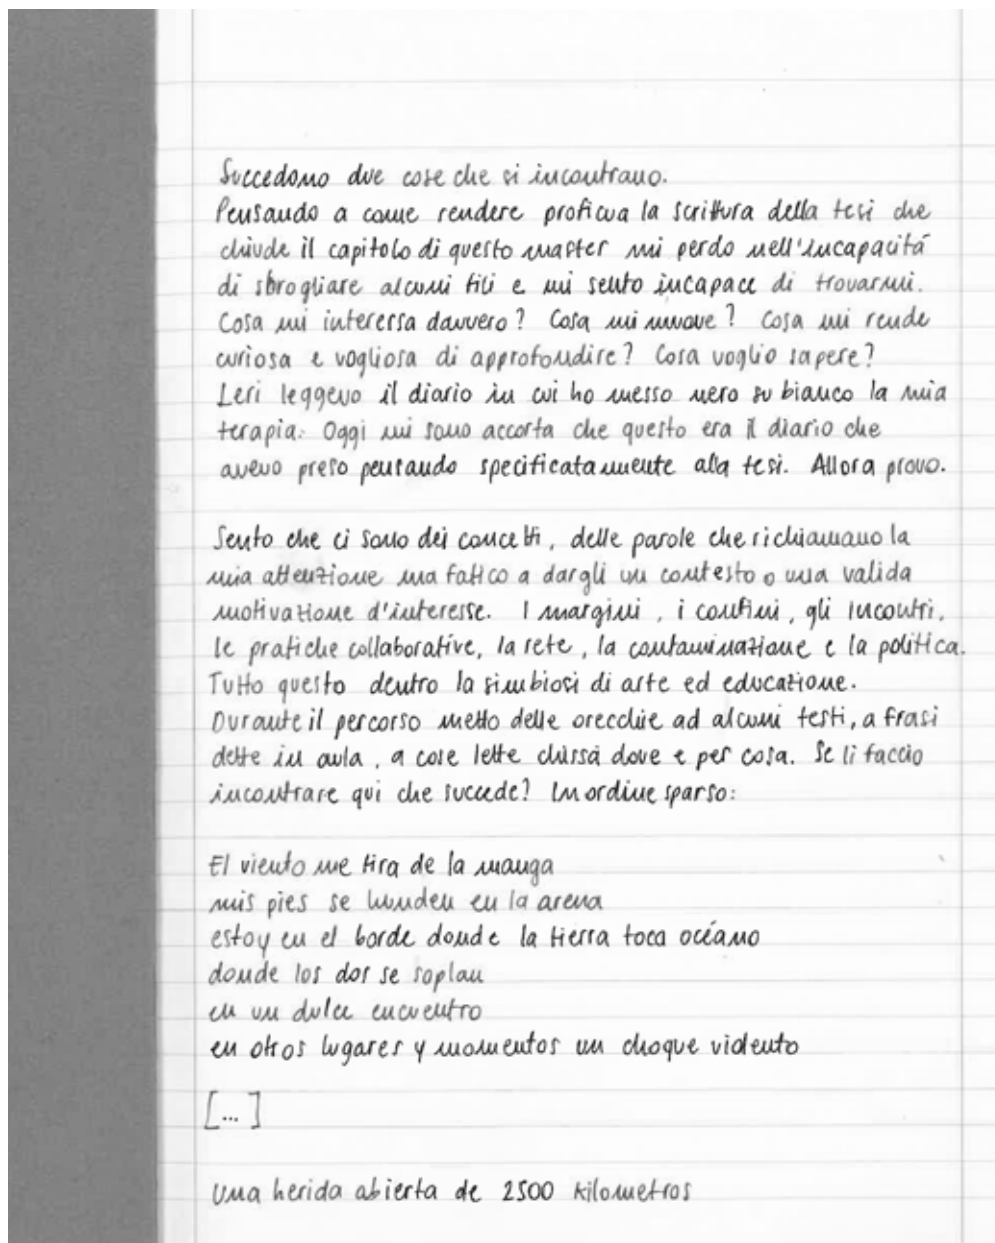 Succedono due cose che si incontrano.
Pensando a come rendere proficua la scrittura della tesi che
chiude il capitolo di questo master mi perdo nell'incapacitá
di sbrogliare alcuni fili e mi sento incapace di trovarmi.
Cosa mi interessa davvero? Cosa mi muove? Cosa mi rende
curiosa e vogliosa di approfondire? Cosa voglio sapere?
Ieri leggevo il diario in cui ho messo nero su bianco la mia
terapia. Oggi mi sono accorta che questo era il diario che
avevo preso pensando specificatamente alla tesi. Allora provo.
Sento che ci sono dei concetti, delle parole che richiamano la
mia attenzione ma fatico a dargli un contesto o una valida
motivazione d'interesse. I margini, i confini, gli incontri,
le pratiche collaborative, la rete, la contaminazione e la politica.
Tutto questo dentro la simbiosi di arte ed educazione.
Durante il percorso metto delle orecchie ad alcuni testi, a frasi
dette in aula, a cose lette chissá dove e per cosa. Se li faccio
incontrare qui che succede? In ordine sparso:
El viento me tira de la manga
mis pies se hunden en la arena
estoy en el borde donde la tierra toca océano
donde los dos se soplan
en un dulce encuentro
en otros lugares y momentos un choque violento
[...]
Una herida abierta de 2500 kilometros